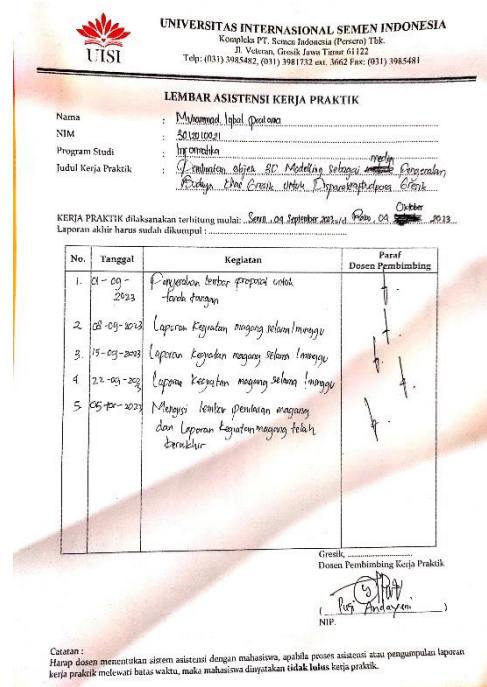 UISI
UNIVERSITAS INTERNASIONAL SEMEN INDONESIA
Kompleks PT. Semen Indonesia (Persero) Tbk.
Jl. Veteran, Gresik Jawa Timur 61122
Telp: (031) 3985482, (031) 3981732 ext. 3662 Fax: (031) 3985481
LEMBAR ASISTENSI KERJA PRAKTIK
Nama : Muhammad Iqbal Pratama
NIM : 3012010021
Program Studi : Informatika
Judul Kerja Praktik : Pembuatan objek 3D Modelling sebagai media Pengenalan
Budaya Khas Gresik untuk Disparekrafbudpora Gresik
KERJA PRAKTIK dilaksanakan terhitung mulai: Senin, 04 September 2023 s/d Rabu, 04 Oktober 2023
Laporan akhir harus sudah dikumpul :
No. Tanggal Kegiatan Paraf
Dosen Pembimbing
1. 01-09-2023 Penyerahan lembar proposal untuk
tanda tangan
2. 08-09-2023 Laporan Kegiatan magang selama 1 minggu
3. 15-09-2023 Laporan Kegiatan magang selama 1 minggu
4. 22-09-2023 Laporan Kegiatan magang selama 1 minggu
5. 05-10-2023 Mengisi lembar penilaian magang
dan Laporan kegiatan magang telah
berakhir
Gresik,
Dosen Pembimbing Kerja Praktik
( Puji Andayani )
NIP.
Catatan :
Harap dosen menentukan sistem asistensi dengan mahasiswa, apabila proses asistensi atau pengumpulan laporan
kerja praktik melewati batas waktu, maka mahasiswa dinyatakan tidak lulus kerja praktik.